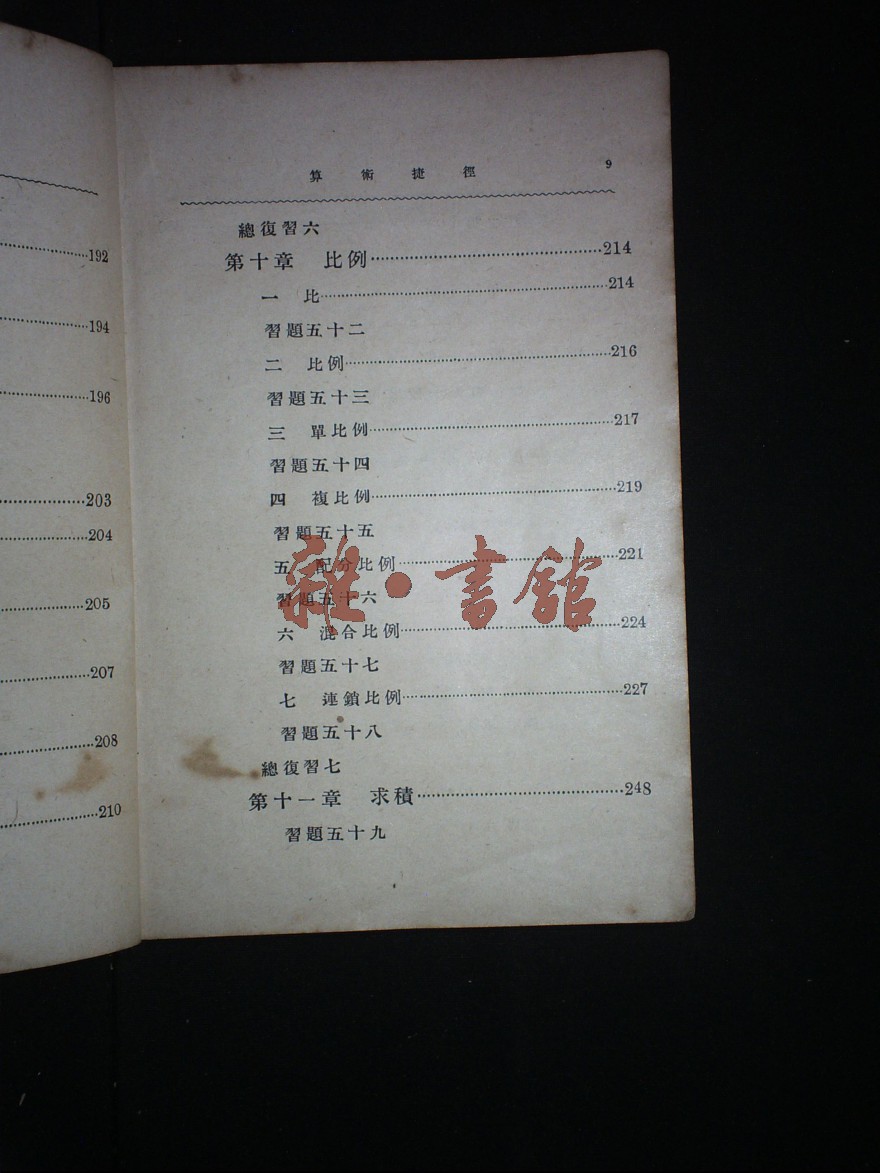 192
194
196
203
204
205
207
208
210
算術捷徑 9
總復習六
第十章 比例 214
一 比 214
習題五十二
二 比例 216
習題五十三
三 單比例 217
習題五十四
四 複比例 219
習題五十五
五 配分比例 221
習題五十六
六 混合比例 224
習題五十七
七 連鎖比例 227
習題五十八
總復習七
第十一章 求積 248
習題五十九
雜·書館